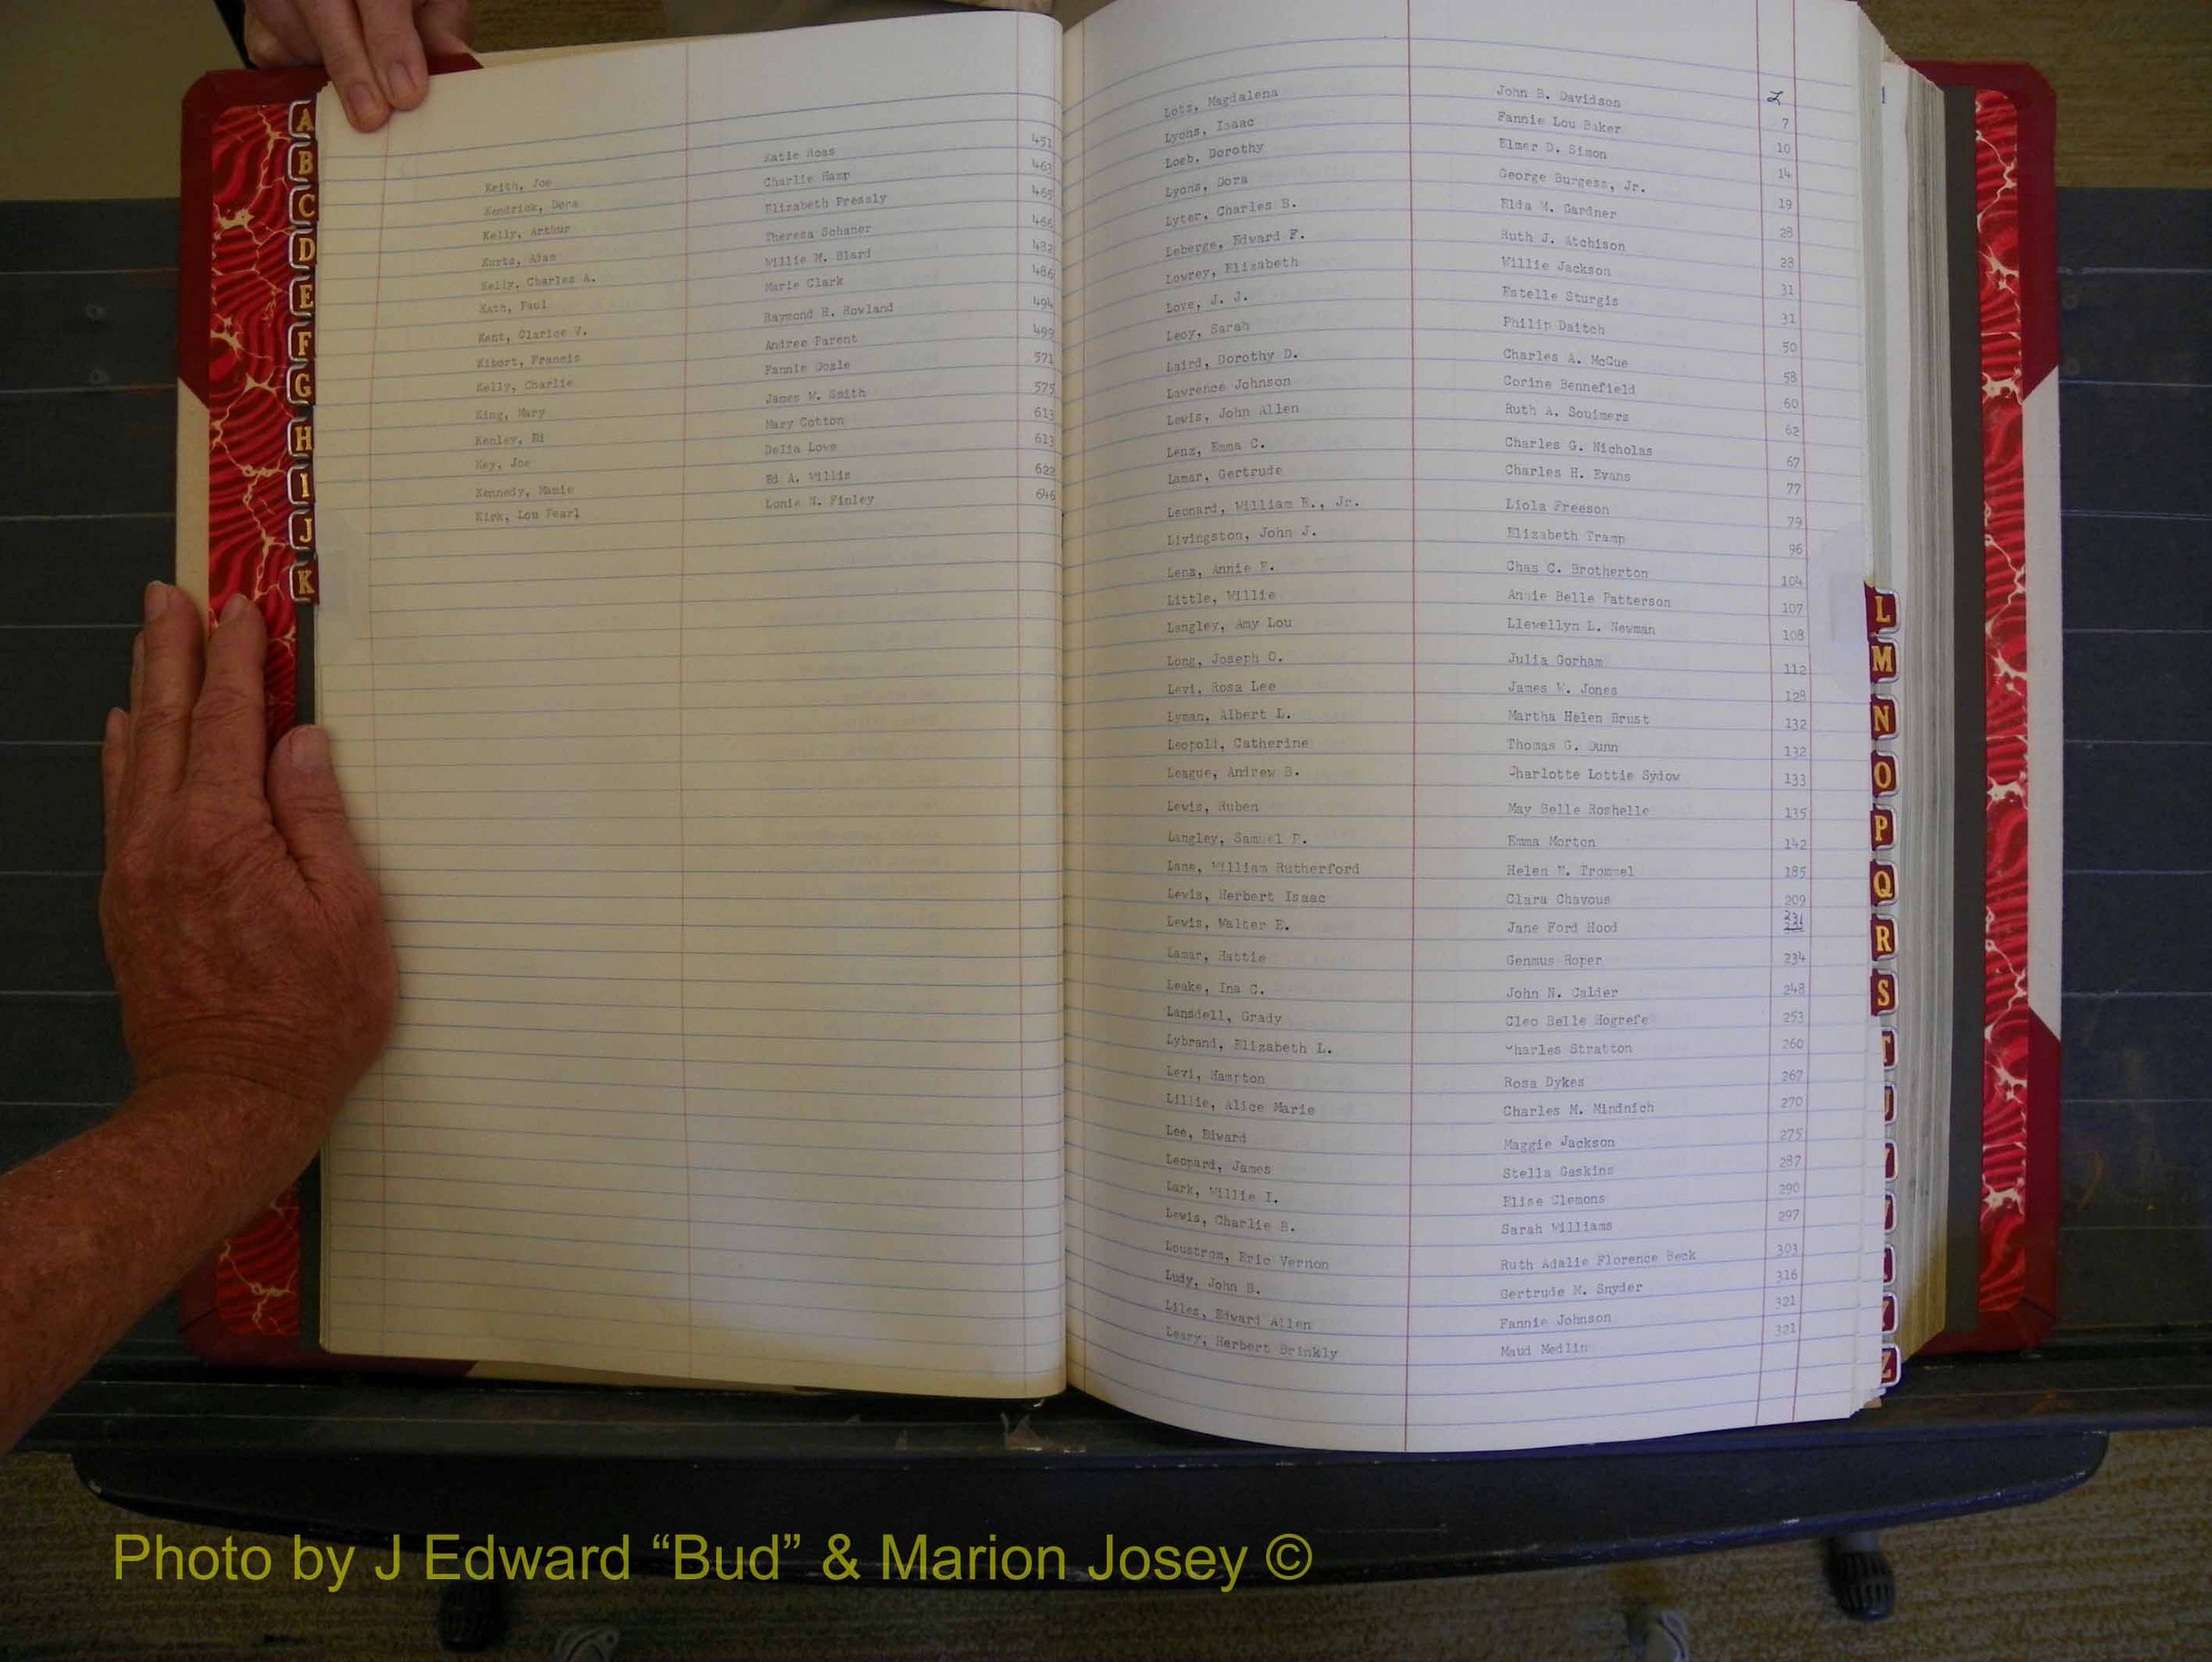 A
B
C
D
E
F
G
H
I
J
K
Keith, Joe Katie Roas 451
Kendrick, Dora Charlie Hamp 463
Kelly, Arthur Elizabeth Pressly 465
Kurtz, Adam Theresa Schaner 466
Kelly, Charles A. Willie M. Blard 482
Kath, Paul Marie Clark 486
Kent, Clarice V. Raymond H. Rowland 494
Kibort, Francis Andree Parent 499
Kelly, Charlie Fannie 571
King, Mary James W. Smith 575
Kenley, Ei Mary Cotton 613
Key, Joe Delia Love 613
Kennedy, Mamie Ed A. Willis 622
Kirk, Lou Pearl Lonie N. Finley 646
Lotz, Magdalena John B. Davidson 2
Lyons, Isaac Fannie Lou Baker 7
Loeb, Dorothy Elmer D. Simon 10
Lyons, Dora George Burgess, Jr. 14
Lyter, Charles B. Elda M. Gardner 19
Leberge, Edward F. Ruth J. Atchison 28
Lowrey, Elizabeth Willie Jackson 28
Love, J. J. Estelle Sturgis 31
Leoy, Sarah Philip Daitch 31
Laird, Dorothy D. Charles A. McCue 50
Lawrence Johnson Corine Bennefield 58
Lewis, John Allen Ruth A. Souimers 60
Lenz, Emma C. Charles G. Nicholas 62
Lamar, Gertrude Charles H. Evans 67
Leonard, William E., Jr. Liola Freeson 77
Livingston, John J. Elizabeth Tramp 79
Lenz, Annie E. Chas C. Brotherton 96
Little, Willie Annie Belle Patterson 104
Langley, Amy Lou Llewellyn L. Newman 107
Long, Joseph O. Julia Gorham 108
Levi, Rosa Lee James W. Jones 112
Lyman, Albert L. Martha Helen Brust 128
Leopold, Catherine Thomas G. Dunn 132
League, Andrew B. Charlotte Lottie Sydow 132
Lewis, Ruben May Belle Roshelle 133
Langley, Samuel P. Emma Morton 135
Lane, William Rutherford Helen E. Trommel 142
Lewis, Herbert Isaac Clara Chavous 185
Lewis, Walter E. Jane Ford Hood 209
Lamar, Hattie Genmus Roper 231
Leake, Ina C. John N. Calder 234
Lansdell, Grady Cleo Belle Hogrefe 248
Lybrand, Elizabeth L. Charles Stratton 253
Levi, Hampton Rosa Dykes 260
Lillie, Alice Marie Charles M. Mindnich 267
Lee, Edward Maggie Jackson 270
Leopard, James Stella Gaskins 275
Lark, Willie I. Elise Clemons 287
Lewis, Charlie B. Sarah Williams 290
Loustrom, Eric Vernon Ruth Adalie Florence Beck 297
Ludy, John B. Gertrude M. Snyder 303
Liles, Edward Allen Fannie Johnson 316
Leary, Herbert Brinkly Maud Medlin 321
321
L
M
N
O
P
Q
R
S
T
Z
Photo by J Edward “Bud” & Marion Josey ©